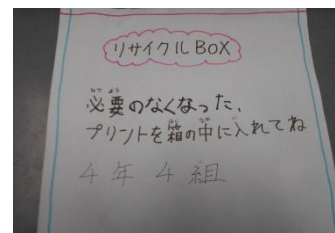 リサイクルBOX
必要のなくなった、
プリントを箱の中に入れてね
4年4組